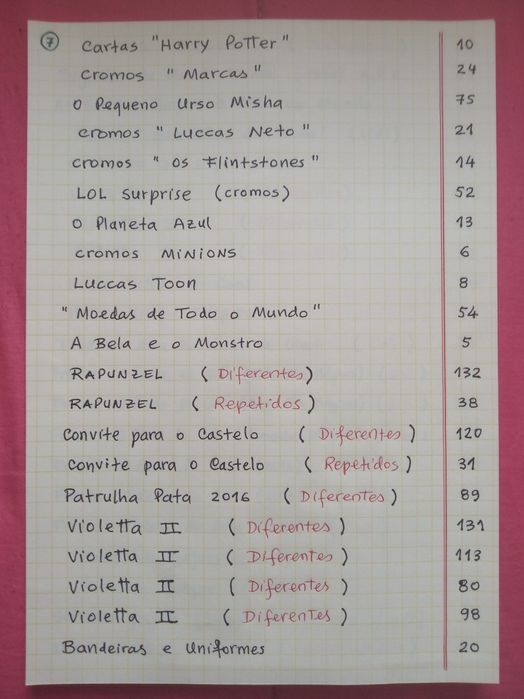 7 Cartas "Harry Potter" 10
Cromos "Marcas" 24
O Pequeno Urso Misha 75
cromos "Luccas Neto" 21
cromos "Os Flintstones" 14
LOL Surprise (cromos) 52
O Planeta Azul 13
cromos MINIONS 6
Luccas Toon 8
"Moedas de Todo o Mundo" 54
A Bela e o Monstro 5
RAPUNZEL (Diferentes) 132
RAPUNZEL (Repetidos) 38
Convite para o Castelo (Diferentes) 120
Convite para o Castelo (Repetidos) 31
Patrulha Pata 2016 (Diferentes) 89
Violetta II (Diferentes) 131
Violetta II (Diferentes) 113
Violetta II (Diferentes) 80
Violetta II (Diferentes) 98
Bandeiras e Uniformes 20